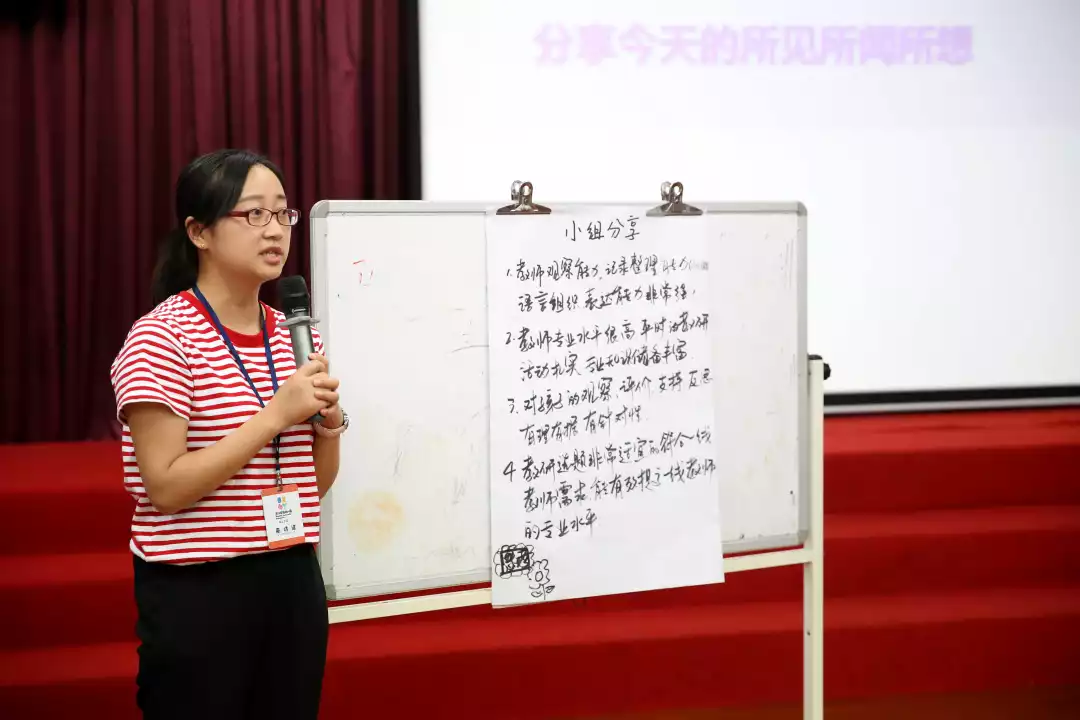 分享今天的所见所闻所想
小组分享
1. 教师观察能力、记录整理能力
语言组织表达能力非常强.
2. 教师专业水平很高 平时的教研
活动扎实 专业知识储备丰富.
3. 对孩子的观察、评价 支持 反思
有理有据 有针对性.
4. 教研选题非常适宜 符合一线
教师需求, 能有效提高一线教师
的专业水平